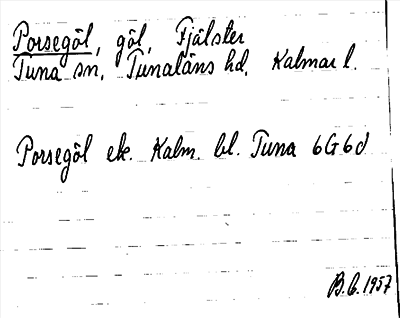 Porsegöl, göl, Fjälster
Tuna sn, Tunaläns hd, Kalmar l.
Porsegöl ek. Kalm. bl. Tuna 6G6d
B.G. 1957